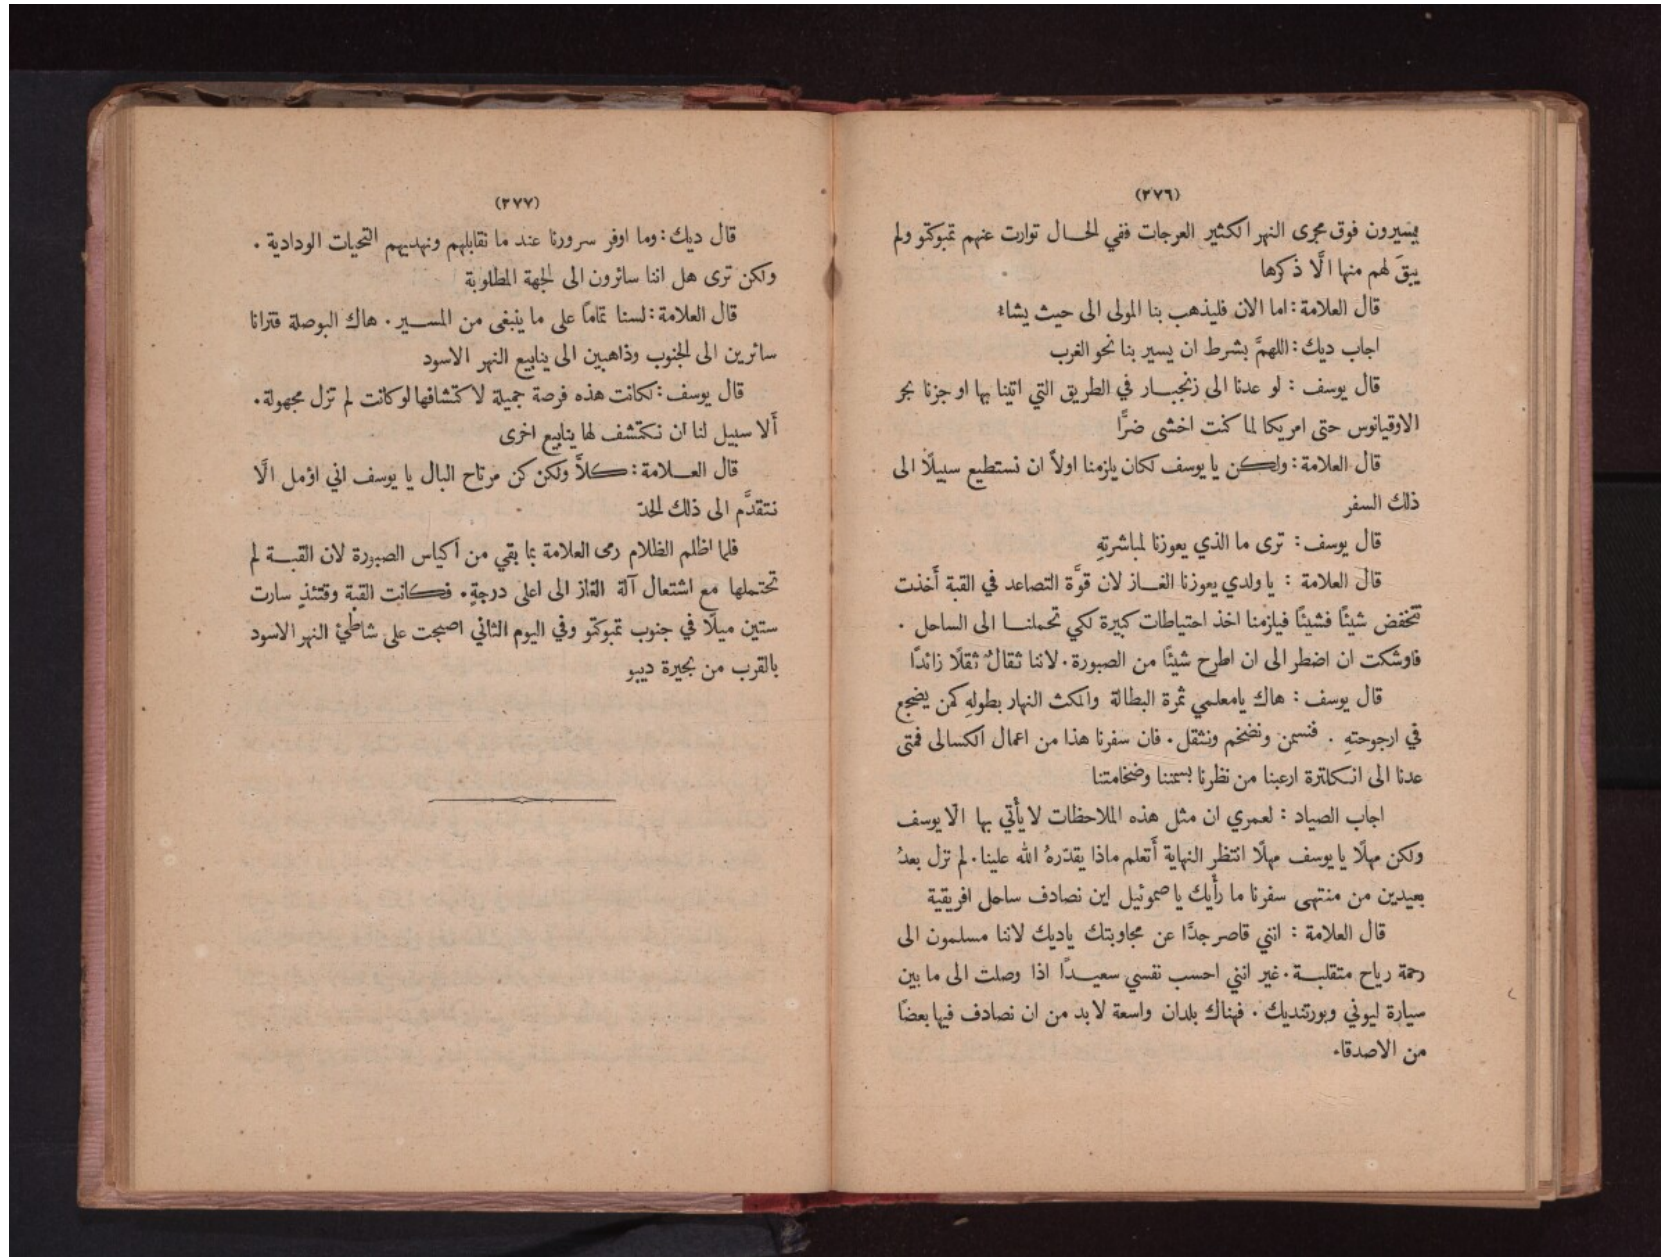 (٢٧٦)
يسيرون فوق مجرى النهر الكثير العرجات ففي الحال توارت عنهم تمبوكتو ولم
يبقَ لهم منها الَّا ذكرها
قال العلامة: اما الان فليذهب بنا المولى الى حيث يشاء
اجاب ديك: اللهمَّ بشرط ان يسير بنا نحو الغرب
قال يوسف : لو عدنا الى زنجبار في الطريق التي اتينا بها او جزنا بحر
الاوقيانوس حتى امريكا لما كنت اخشى ضرًّا
قال العلامة: ولكن يا يوسف لكان يلزمنا اولاً ان نستطيع سبيلًا الى
ذلك السفر
قال يوسف : ترى ما الذي يعوزنا لمباشرتهِ
قال العلامة : يا ولدي يعوزنا الغاز لان قوَّة التصاعد في القبة أخذت
تنخفض شيئًا فشيئًا فيلزمنا اخذ احتياطات كبيرة لكي تحملنا الى الساحل .
فاوشكت ان اضطر الى ان اطرح شيئًا من الصبورة . لاننا ثقالٌ ثقلًا زائدًا
قال يوسف : هاك يامعلمي ثمرة البطالة والمكث النهار بطولهِ كمن يضجع
في ارجوحتهِ . فنسمن ونضخم ونثقل . فان سفرنا هذا من اعمال الكسالى فمتى
عدنا الى انكلترة ارعبنا من نظرنا بسمننا وضخامتنا
اجاب الصياد : لعمري ان مثل هذه الملاحظات لا يأتي بها الَّا يوسف
ولكن مهلًا يا يوسف مهلًا انتظر النهاية أتعلم ماذا يقدّرهُ الله علينا . لم نزل بعدُ
بعيدين من منتهى سفرنا ما رأيك يا صموئيل اين نصادف ساحل افريقية
قال العلامة : انني قاصر جدًّا عن مجاوبتك ياديك لاننا مسلمون الى
رحمة رياح متقلبة . غير انني احسب نفسي سعيدًا اذا وصلت الى ما بين
سيارة ليوني وبورتنديك . فهناك بلدان واسعة لا بد من ان نصادف فيها بعضًا
من الاصدقاء
(٢٧٧)
قال ديك: وما اوفر سرورنا عند ما نقابلهم ونهديهم التحيات الودادية .
ولكن ترى هل اننا سائرون الى الجهة المطلوبة
قال العلامة: لسنا تمامًا على ما ينبغي من المسير . هاك البوصلة فترانا
سائرين الى الجنوب وذاهبين الى ينابيع النهر الاسود
قال يوسف: لكانت هذه فرصة جميلة لاكتشافها لو كانت لم تزل مجهولة .
ألا سبيل لنا ان نكتشف لها ينابيع اخرى
قال العلامة: كلاَّ ولكن كن مرتاح البال يا يوسف اني اؤمل الَّا
نتقدَّم الى ذلك الحد
فلما اظلم الظلام رمى العلامة بما بقي من اكياس الصبورة لان القبة لم
تحتملها مع اشتعال آلة الغاز الى اعلى درجةٍ . فكانت القبة وقتئذٍ سارت
ستين ميلًا في جنوب تمبوكتو وفي اليوم الثاني اصبحت على شاطئ النهر الاسود
بالقرب من بحيرة ديبو